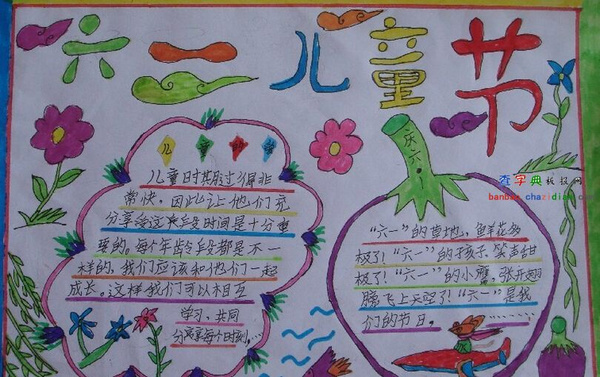 六一儿童节
儿童时其胜过得非
常快，因此让他们充
分享受这末段时间是十分重
要的。每个年龄段都是不一
样的，我们应该和他们一起
成长。这样我们可以相互
学习、共同
分享每个时刻。…
庆六一
查字典板报网
banbao.chazidian.com
“六一”的草地山，鲜花多
极了！“六一”的孩子，笑声甜
极了！“六一”的小鹰，张开翅
膀飞上天空了！“六一”是我
们的节日。………